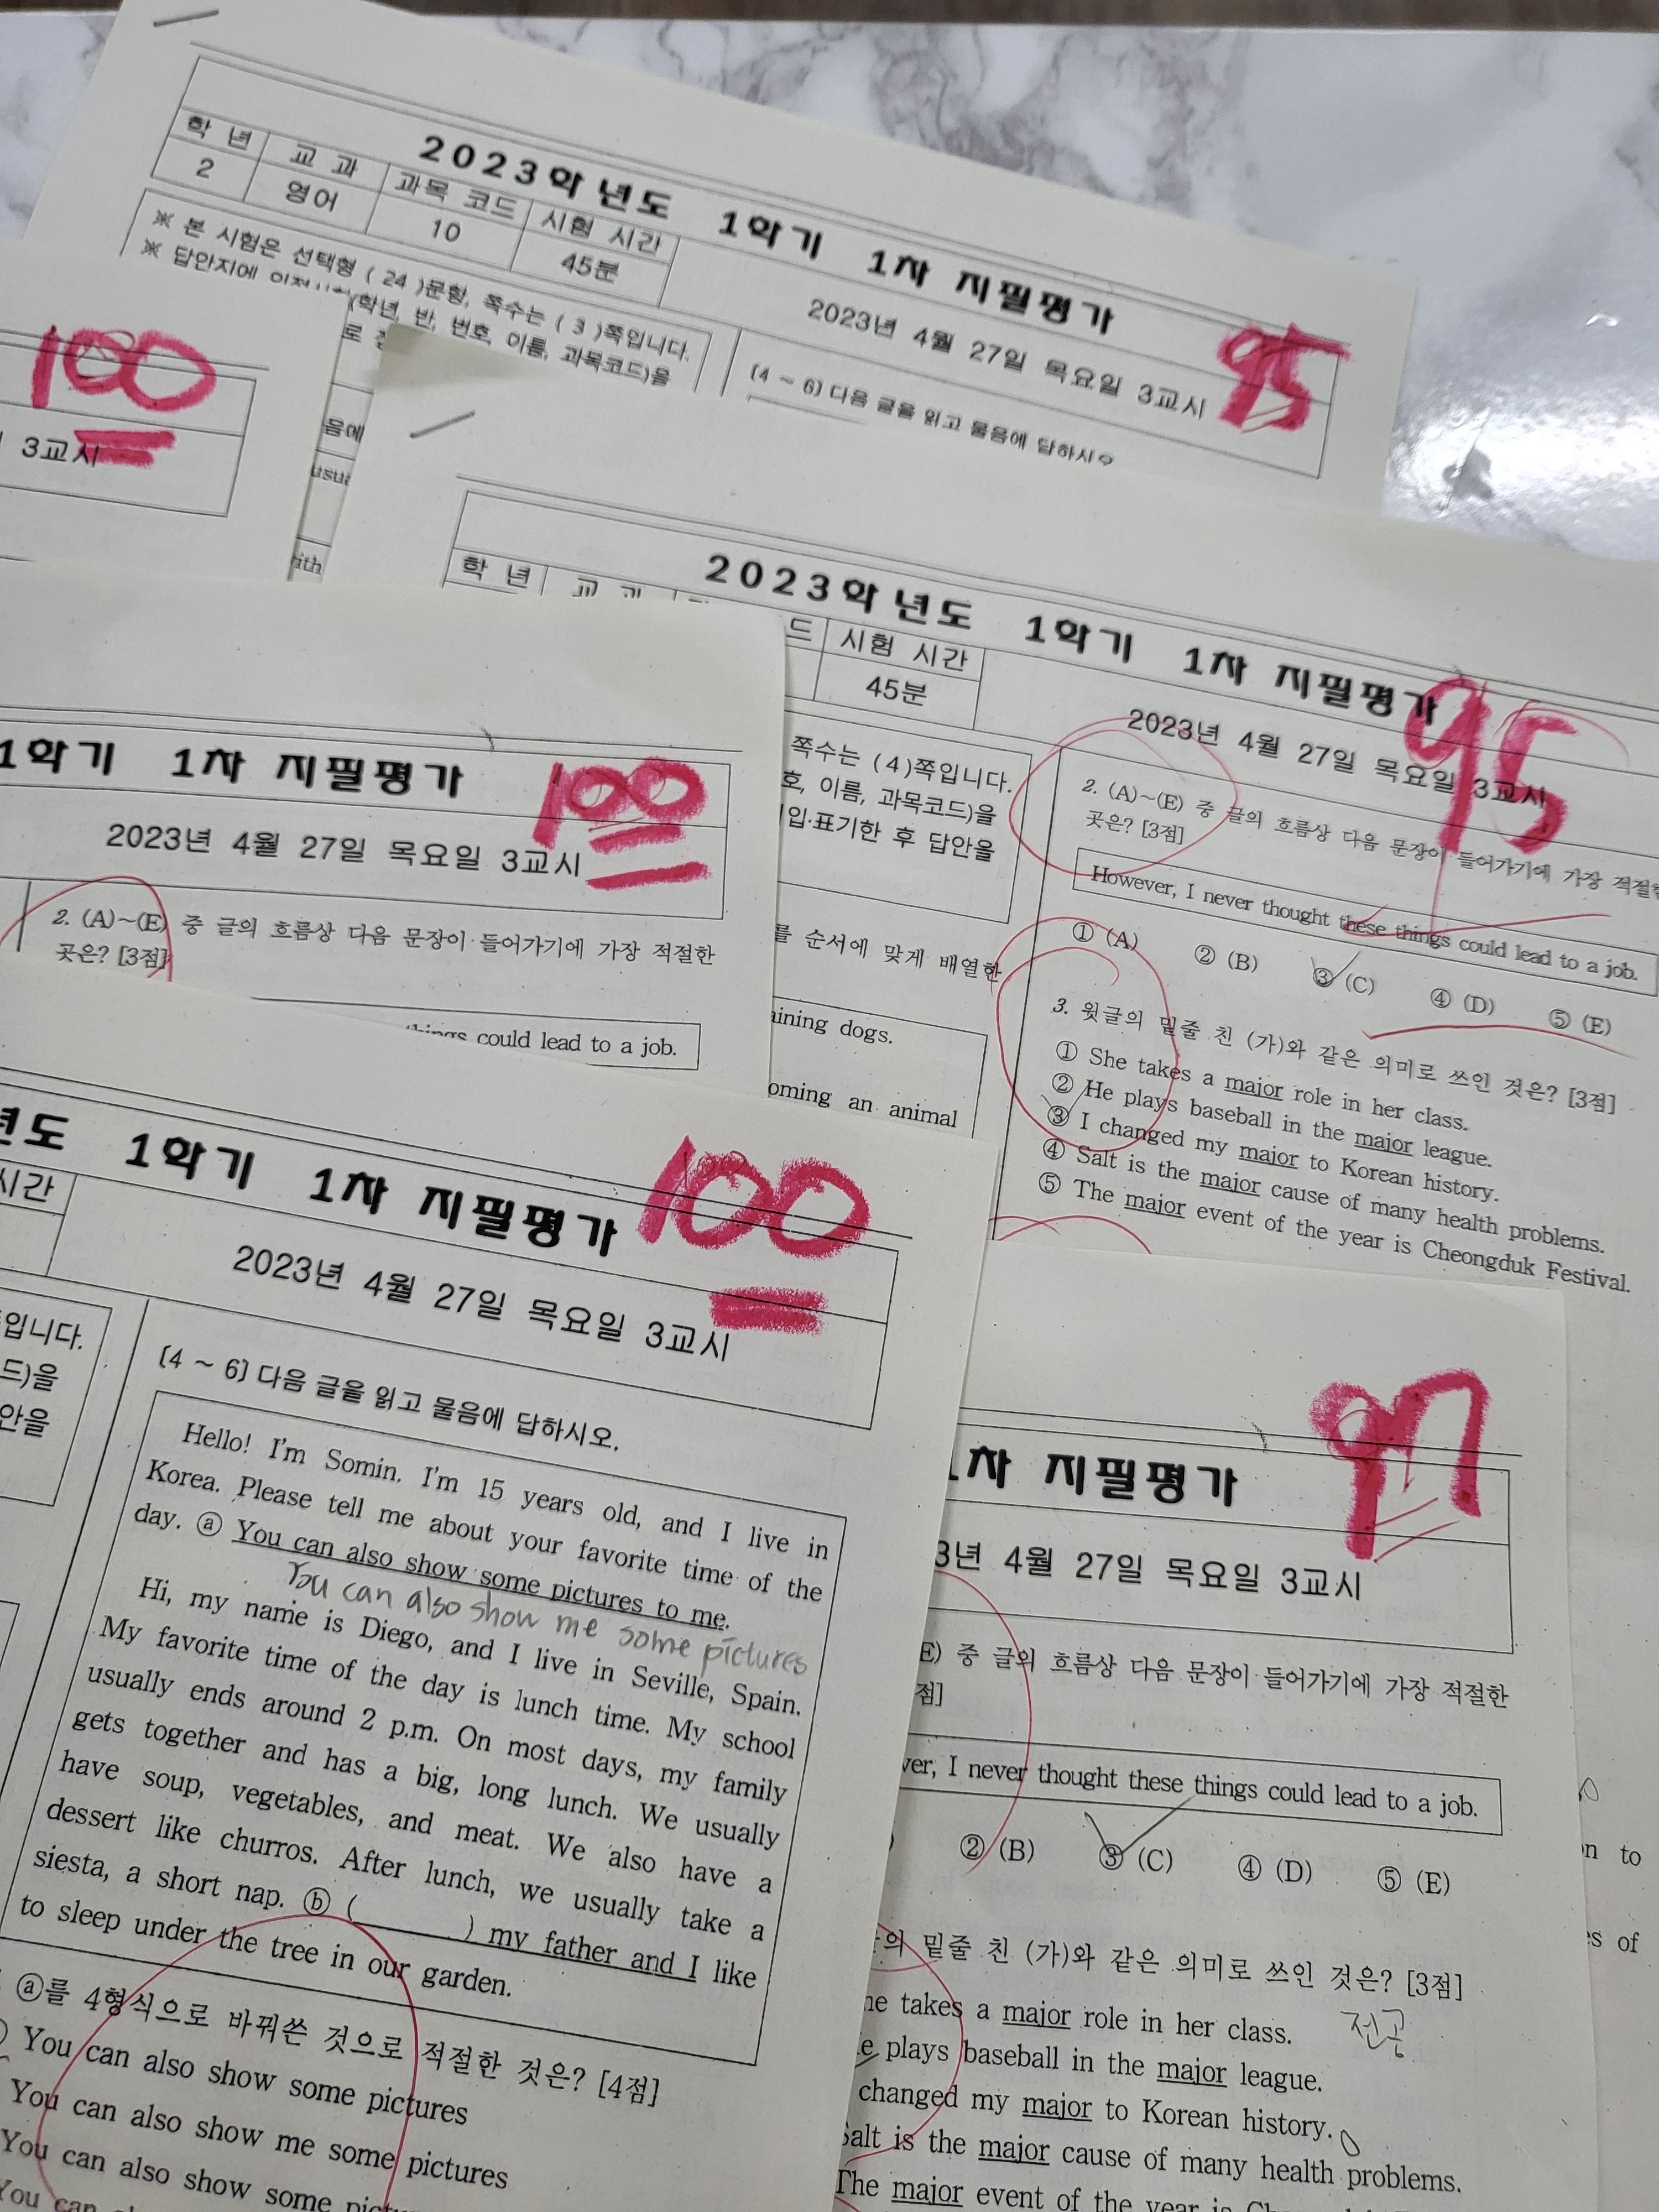 2023학년도 1학기 1차 지필평가
학 년 교 과 과목 코드 시험 시간
2 영어 10 45분
2023년 4월 27일 목요일 3교시
95
※ 본 시험은 선택형 ( 24 )문항, 쪽수는 ( 3 )쪽입니다.
※ 답안지에
(학년, 반, 번호, 이름, 과목코드)을
[4 ~ 6] 다음 글을 읽고 물음에 답하시오
100
3교시
음에
usua
with
2023학년도 1학기 1차 지필평가
95
학 년 교 과 드 시험 시간
45분
2023년 4월 27일 목요일 3교시
쪽수는 ( 4 )쪽입니다.
호, 이름, 과목코드)을
입·표기한 후 답안을
를 순서에 맞게 배열한
aining dogs.
oming an animal
2. (A)~(E) 중 글의 흐름상 다음 문장이 들어가기에 가장 적절한
곳은? [3점]
However, I never thought these things could lead to a job.
① (A) ② (B) ③ (C) ④ (D) ⑤ (E)
3. 윗글의 밑줄 친 (가)와 같은 의미로 쓰인 것은? [3점]
① She takes a major role in her class.
② He plays baseball in the major league.
③ I changed my major to Korean history.
④ Salt is the major cause of many health problems.
⑤ The major event of the year is Cheongduk Festival.
1학기 1차 지필평가
100
2023년 4월 27일 목요일 3교시
2. (A)~(E) 중 글의 흐름상 다음 문장이 들어가기에 가장 적절한
곳은? [3점]
things could lead to a job.
년도 1학기 1차 지필평가
100
시간
2023년 4월 27일 목요일 3교시
입니다.
드)을
안을
[4 ~ 6] 다음 글을 읽고 물음에 답하시오.
Hello! I'm Somin. I'm 15 years old, and I live in
Korea. Please tell me about your favorite time of the
day. ⓐ You can also show some pictures to me.
You can also show me some pictures
Hi, my name is Diego, and I live in Seville, Spain.
My favorite time of the day is lunch time. My school
usually ends around 2 p.m. On most days, my family
gets together and has a big, long lunch. We usually
have soup, vegetables, and meat. We also have a
dessert like churros. After lunch, we usually take a
siesta, a short nap. ⓑ (          ) my father and I like
to sleep under the tree in our garden.
ⓐ를 4형식으로 바꿔쓴 것으로 적절한 것은? [4점]
You can also show some pictures
You can also show me some pictures
You can also show some pict
You can
1차 지필평가
97
3년 4월 27일 목요일 3교시
E) 중 글의 흐름상 다음 문장이 들어가기에 가장 적절한
점]
ver, I never thought these things could lead to a job.
② (B) ③ (C) ④ (D) ⑤ (E)
의 밑줄 친 (가)와 같은 의미로 쓰인 것은? [3점]
he takes a major role in her class.
전공
e plays baseball in the major league.
changed my major to Korean history.
Salt is the major cause of many health problems.
The major event of the year is
on to
es of